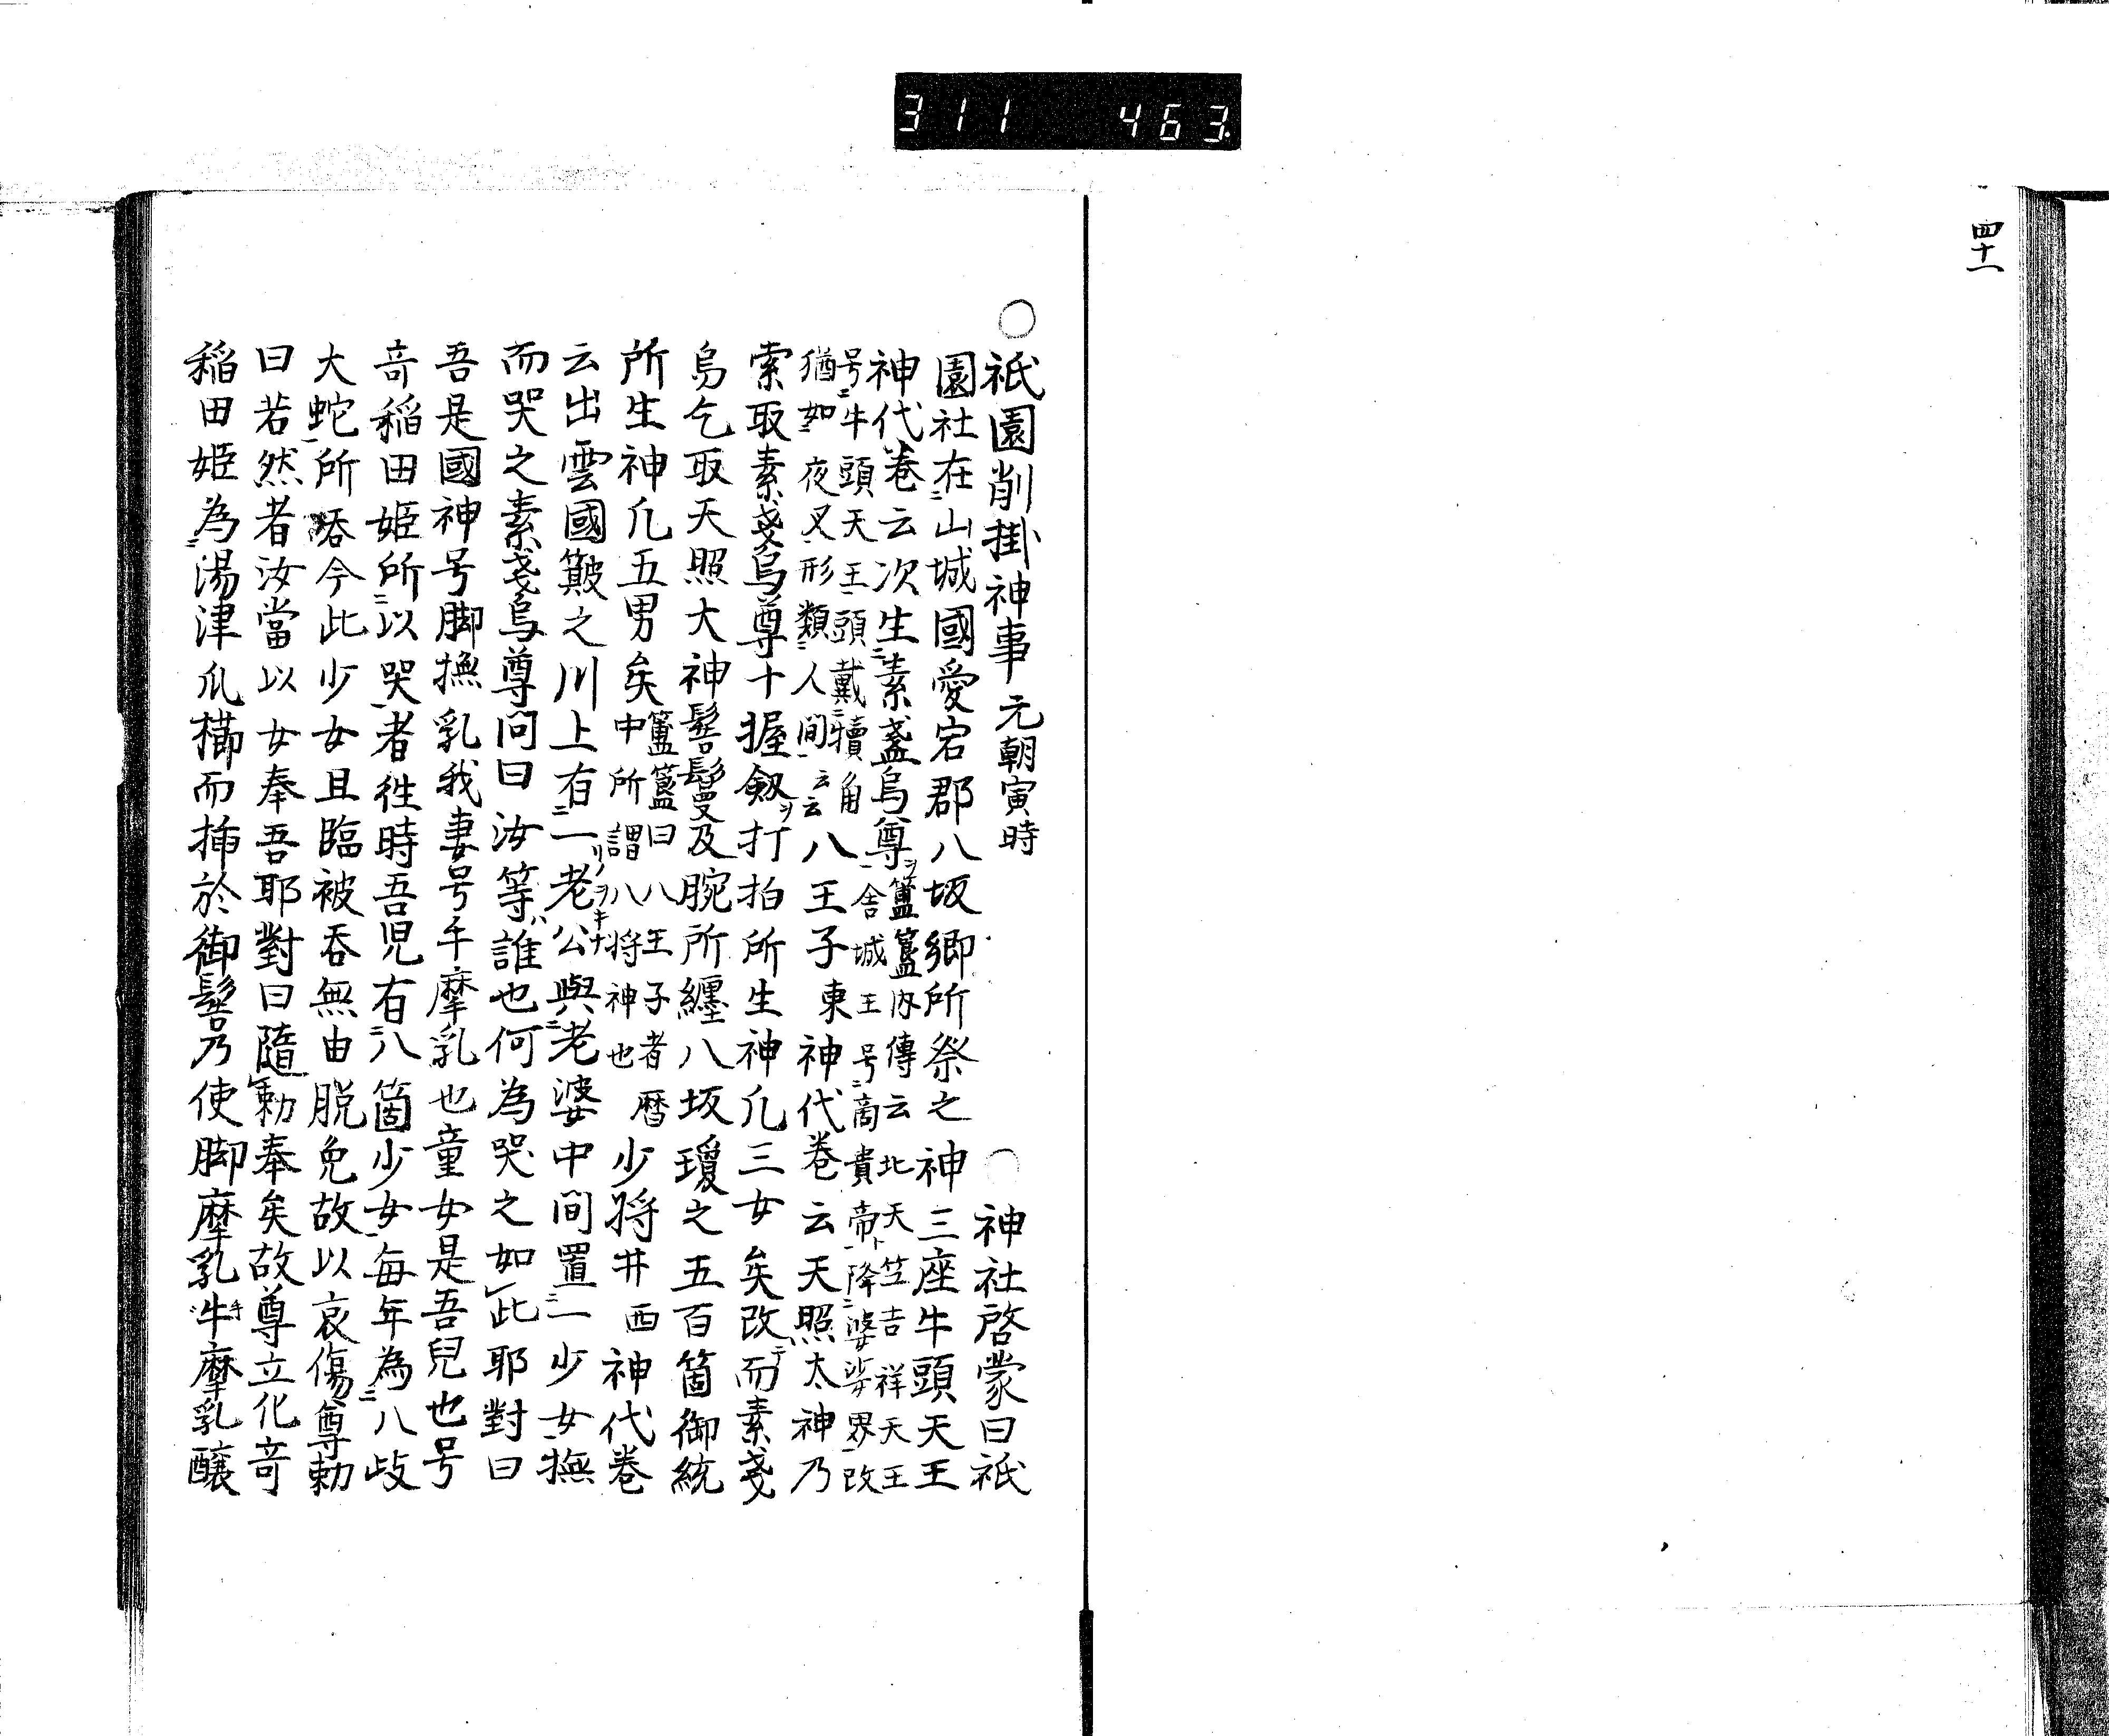 311 463
四十一
○祇園削掛神事 元朝寅時 神社啓蒙曰祇
園社在山城國愛宕郡八坂郷所祭之神三座牛頭天王
神代巻云次生素盞烏尊ヲ簠簋内傳云北天竺吉祥天王
舎城王号商貴帝ト降娑婆界改
号牛頭天王頭戴犢角
猶如夜叉形類人間云云八王子東神代巻云天照太神乃
索取素戔烏尊十握劔ヲ打拍所生神凢三女矣改而素戔
烏乞取天照大神髻鬘及腕所纒八坂瓊之五百箇御統
所生神凢五男矣簠簋曰八王子者暦
中所謂八将神也少将井西神代巻
云出雲國簸之川上有一老公與老婆中間置一少女撫
而哭之素戔烏尊問曰汝等ハ誰也何為哭之如此耶對曰
吾是國神号脚撫乳我妻号手摩乳也童女是吾兒也号
奇稲田姫所以哭者徃時吾児有八箇少女毎年為八岐
大蛇所呑今此少女且臨被呑無由脱免故以哀傷尊勅
曰若然者汝當以女奉吾耶對曰隨勅奉矣故尊立化奇
稲田姫為湯津爪櫛而挿於御髻乃使脚摩乳手摩乳醸